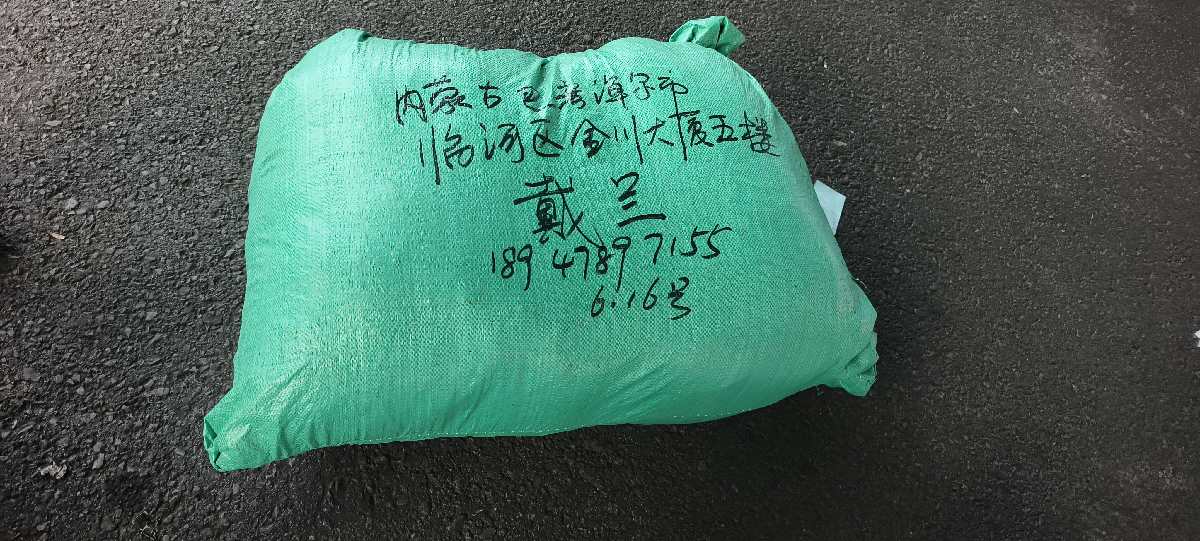 内蒙古巴彦淖尔市
临河区金川大厦五楼
戴兰
189 4789 7155
6.16号